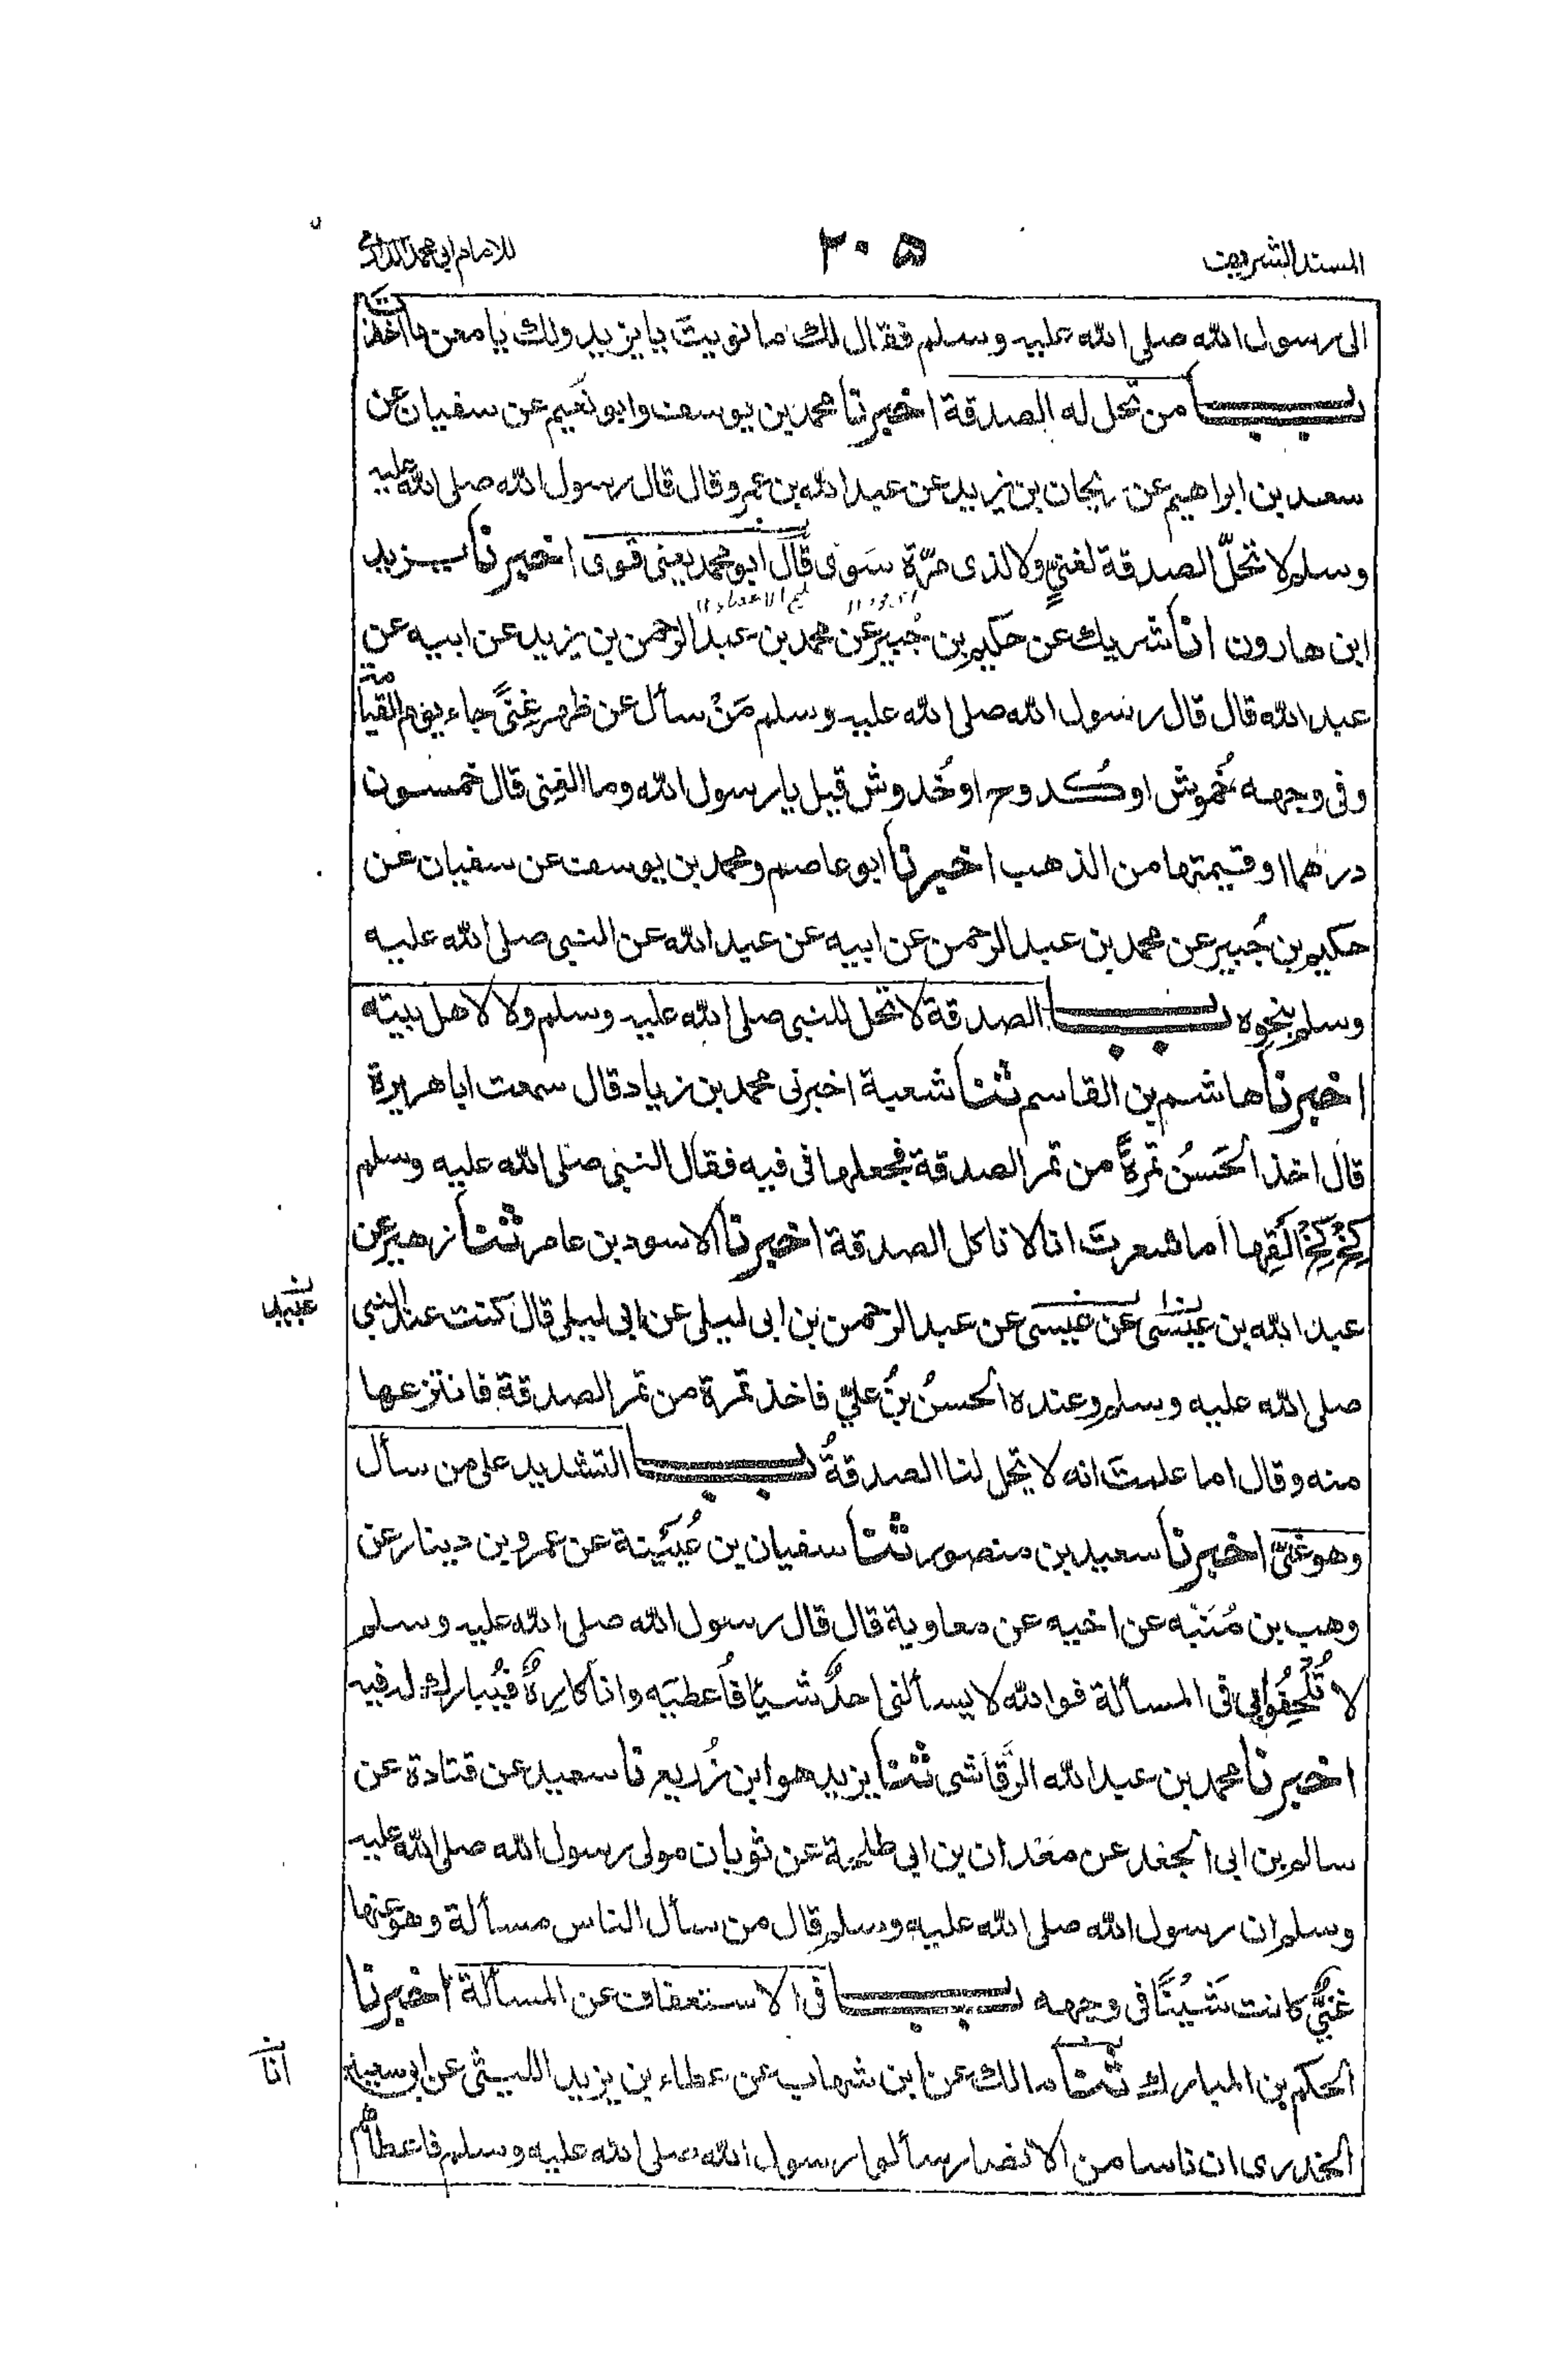 المسند الشريف
٢٠٥
للامام ابي محمد الدارمي
الى رسول الله صلى الله عليه وسلم فقال لك ما نويتَ يا يزيد ولك يا معن ما اخذت
باب من تحل له الصدقة اخبرنا محمد بن يوسف وابو نعيم عن سفيان عن
سعد بن ابراهيم عن ريحان بن يزيد عن عبد الله بن عمرو قال قال رسول الله صلى الله عليه
وسلم لا تحلّ الصدقة لغنيٍّ ولا لذى مرّة سَوى قال ابو محمد يعنى قوى اخبرنا يزيد
ابن هارون انا شريك عن حكيم بن جُبير عن محمد بن عبد الرحمن بن يزيد عن ابيه عن
عبد الله قال قال رسول الله صلى الله عليه وسلم مَنْ سأل عن ظهر غِنىً جاء يوم القيامة
وفى وجهه خُموش او كُدوح او خُدوش قيل يا رسول الله وما الغِنى قال خمسون
درهما او قيمتها من الذهب اخبرنا ابو عاصم ومحمد بن يوسف عن سفيان عن
حكيم بن جُبير عن محمد بن عبد الرحمن عن ابيه عن عبد الله عن النبى صلى الله عليه
وسلم بنحوه باب الصدقة لا تحل للنبى صلى الله عليه وسلم ولا لاهل بيته
اخبرنا هاشم بن القاسم ثنا شعبة اخبرنى محمد بن زياد قال سمعت ابا هريرة
قال اخذ الحَسَنُ تمرةً من تمر الصدقة فجعلها فى فيه فقال النبى صلى الله عليه وسلم
كِخْ كِخْ اَلْقِها أما شعرتَ انا لا ناكل الصدقة اخبرنا الاسود بن عامر ثنا زهير عن
عبد الله بن عيسى عن عيسى عن عبد الرحمن بن ابى ليلى عن ابى ليلى قال كنت عند النبى
صلى الله عليه وسلم وعنده الحسنُ بنُ عليّ فاخذ تمرة من تمر الصدقة فانتزعها
منه وقال اما علمتَ انه لا تحل لنا الصدقةُ باب التشديد على من سأل
وهو غنىّ اخبرنا سعيد بن منصور ثنا سفيان بن عُيَيْنة عن عمرو بن دينار عن
وهب بن مُنَبِّه عن اخيه عن معاوية قال قال رسول الله صلى الله عليه وسلم
لا تُلْحِفُوا بى فى المسألة فوالله لا يسألنى احدٌ شيئا فأُعطيَه وانا كارِهٌ فيُبارك له فيه
اخبرنا محمد بن عبد الله الرَّقَاشى ثنا يزيد هو ابن زُريع نا سعيد عن قتادة عن
سالم بن ابى الجعد عن مَعْدان بن ابى طلحة عن ثوبان مولى رسول الله صلى الله عليه
وسلم ان رسول الله صلى الله عليه وسلم قال من سأل الناس مسألة وهو عنها
غنىٌّ كانت شَيْنًا فى وجهه باب فى الاستعفاف عن المسألة اخبرنا
الحكم بن المبارك ثنا مالك عن ابن شهاب عن عطاء بن يزيد الليثى عن ابو سعيد
الخدرى ان ناسا من الانصار سألوا رسول الله صلى الله عليه وسلم فاعطاهم
انا